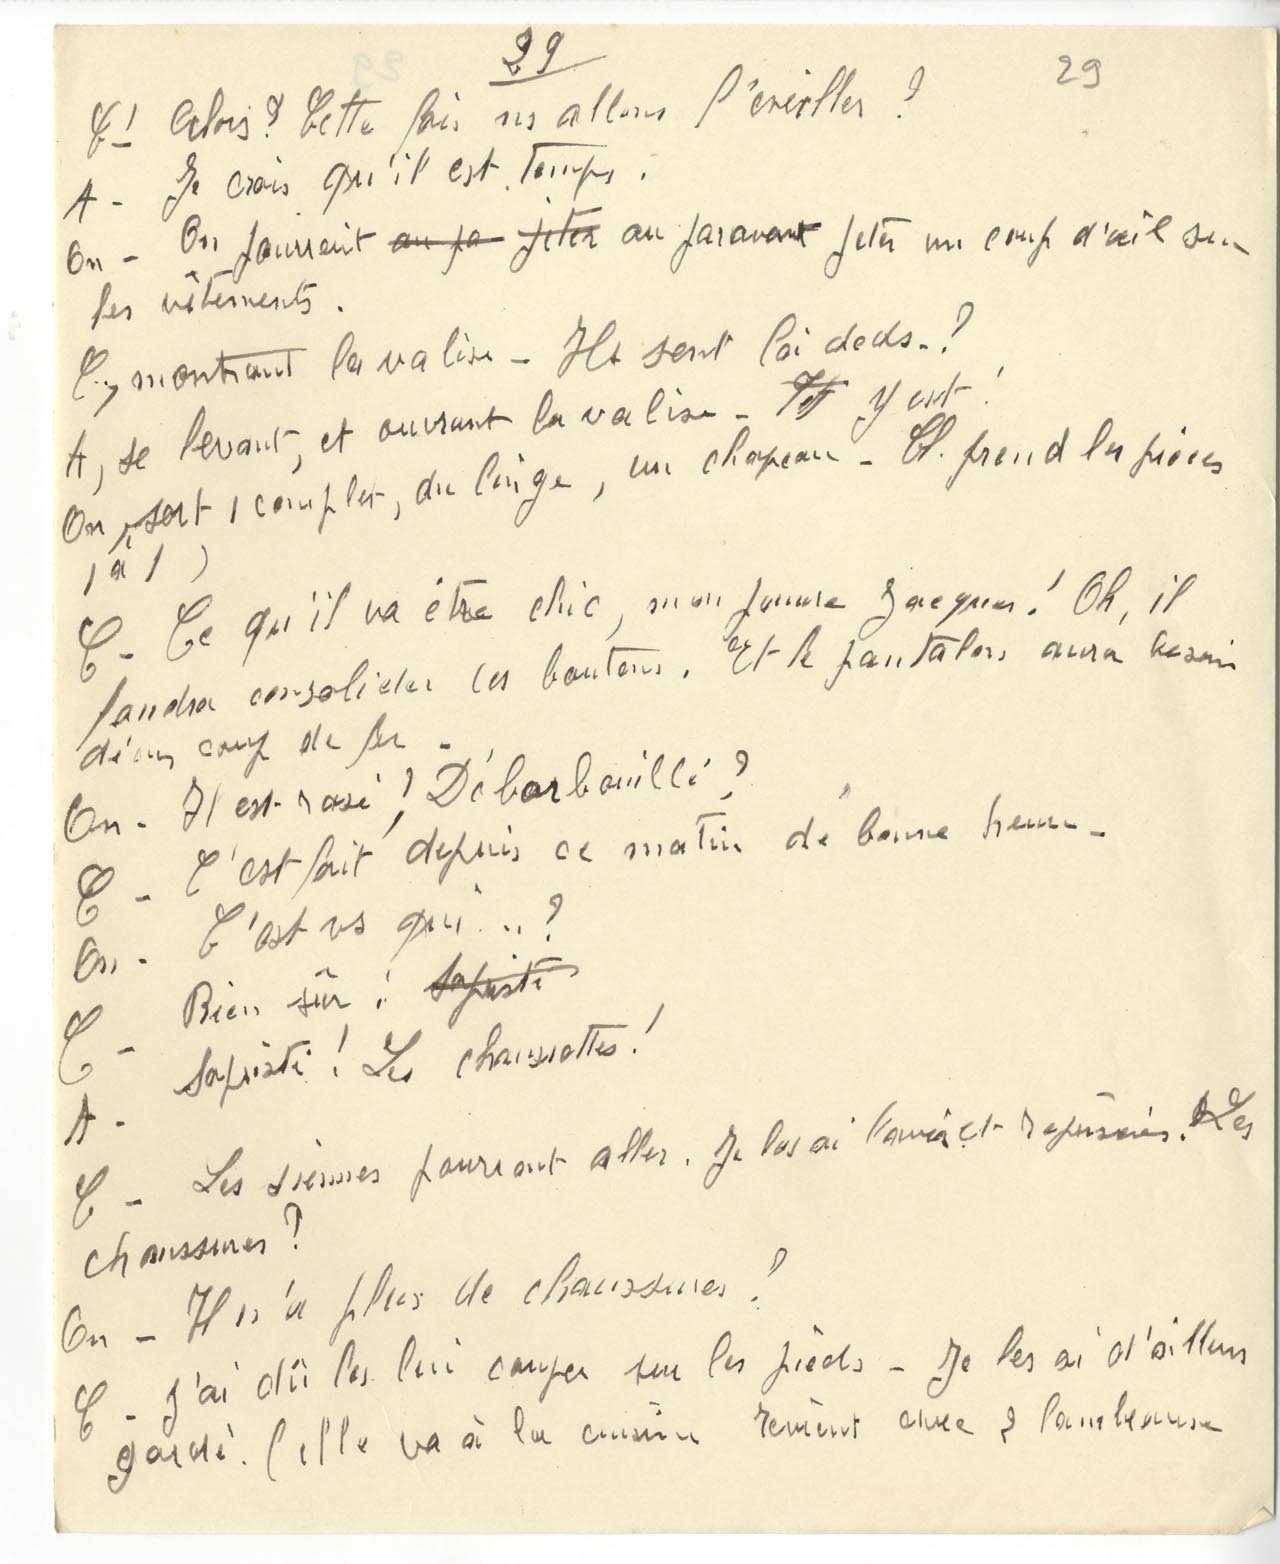 29 29
C! Alors? Cette fois ns allons l'éveiller?
A - Je crois qu'il est temps.
On - On pourrait au pa jeter au paravant jeter un coup d'œil sur
les vêtements.
C, montrant la valise - Ils sont là deds - ?
A, se levant, et ouvrant la valise - Y est!
On sort 1 complet, du linge, un chapeau - Cl. prend les pièces
1 à 1)
C - Ce qu'il va être chic, mon pauvre Jacques! Oh, il
faudra consolider les boutons. Et le pantalon aura besoin
d'un coup de fer -
On - Il est rasé? Débarbouillé?
C - C'est fait depuis ce matin de bonne heure -
On - C'est vs qui...?
C - Bien sûr! Sapristi
A - Sapristi! Les chaussettes!
C - Les siennes pourront aller. Je les ai lavées et reprisées. Les
chaussures?
On - Il n'a plus de chaussures?
C - J'ai dû les lui couper sur les pieds - Je les ai d'ailleurs
gardé. (elle va à la cuisine revient avec 2 lambeaux